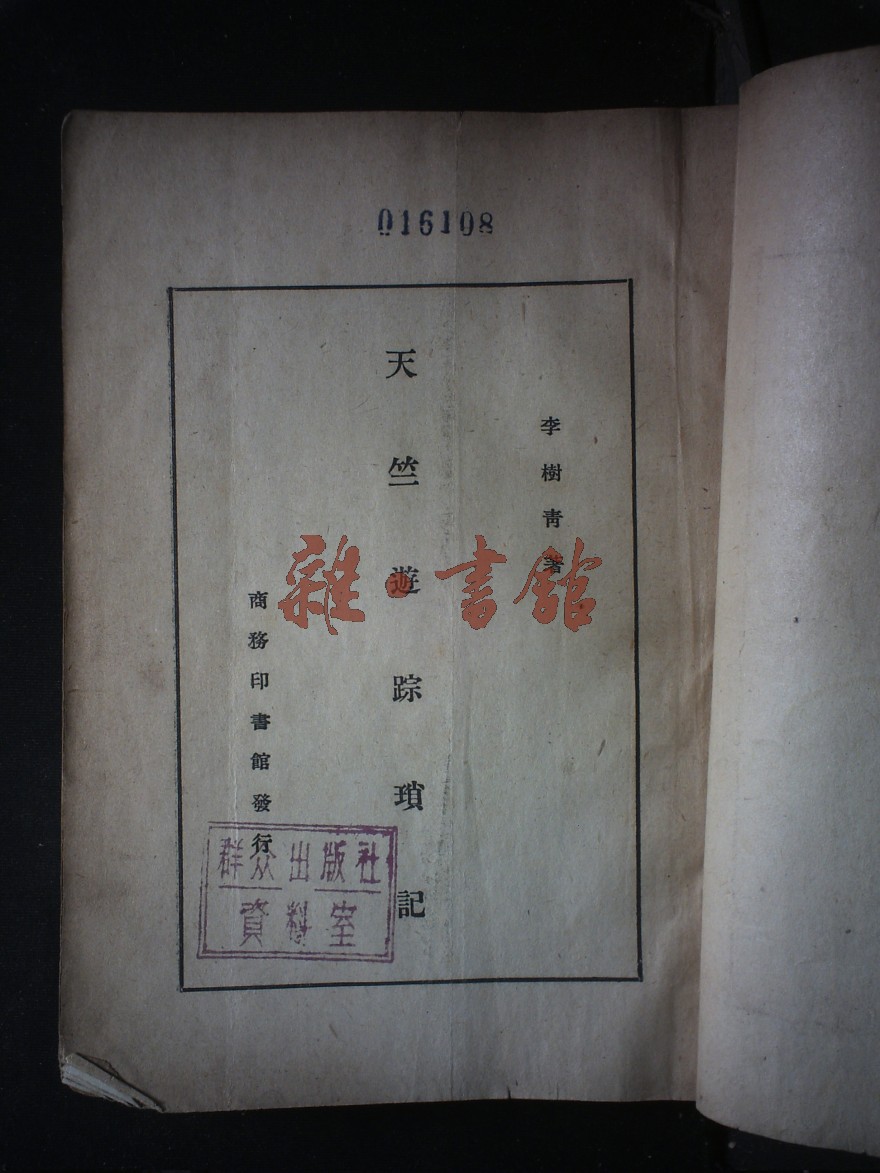 016108
李樹青著
天竺遊踪瑣記
商務印書館發行
雜·書館
群众出版社
資料室